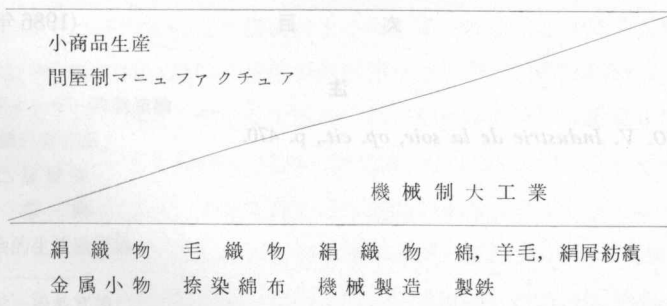 小商品生産
問屋制マニュファクチュア
機械制大工業
絹織物 毛織物 絹織物 綿，羊毛，絹屑紡績
金属小物 捺染綿布 機械製造 製鉄